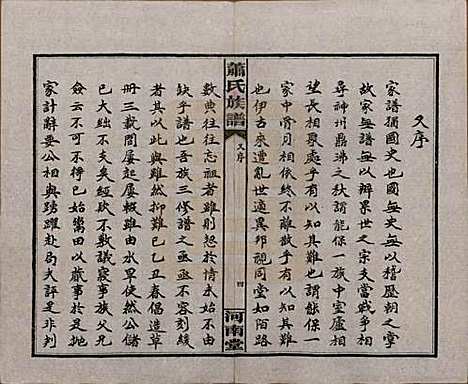 又序
家譜猶國史也國無史無以稽歷朝之
故家無譜無以辨累世之宗夫當戰爭相
尋神州鼎沸之秋謂能保一族中室廬相
望長相聚處乎有以知其難也謂能保一
家中骨月相依終不離散乎有以知其難
也伊古來遭亂世適異邦視同堂如陌路
蕭氏族譜
又序
四
河南堂
數典往往忘祖者雖則恕於情未始不由
缺乎譜也吾族三修譜之亟亟不容刻緩
者其以此與雖然抑難已乙丑春倡造草
冊三載間屢起屢踬雖由水旱使然公儲
之不足亦未始不歉議事族父兄
僉云不可不得已始鬻田以蕆事時丁卯
家計辭要公相與踴躍赴局夫譜是非判